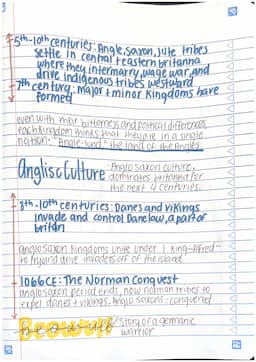 5th-10th centuries: Angle, Saxon, Jute tribes
settle in central eastern britanna
where they intermarry, wage war, and
drive indigenous tribes westward
7th century: major + minor Kingdoms have
formed
even with their bitterness and political differences,
each kingdom thinks that they are in a single
nation: "Angle-land" the land of the Angles
Anglis Culture - Anglo saxon culture,
dominates britannia for
the next 4 centuries.
8th-10th centuries: Danes and Vikings
invade and control Danelaw, a part of
britain
anglo saxon kingdoms unite under 1 king-Alfred-
to try and drive invaders off of the island
1066CE: The Norman Conquest
anglo saxon period ends, now norman tribes to
expel danes + vikings. Anglo saxons = conquered
beowulf / Story of a germanic
warrior